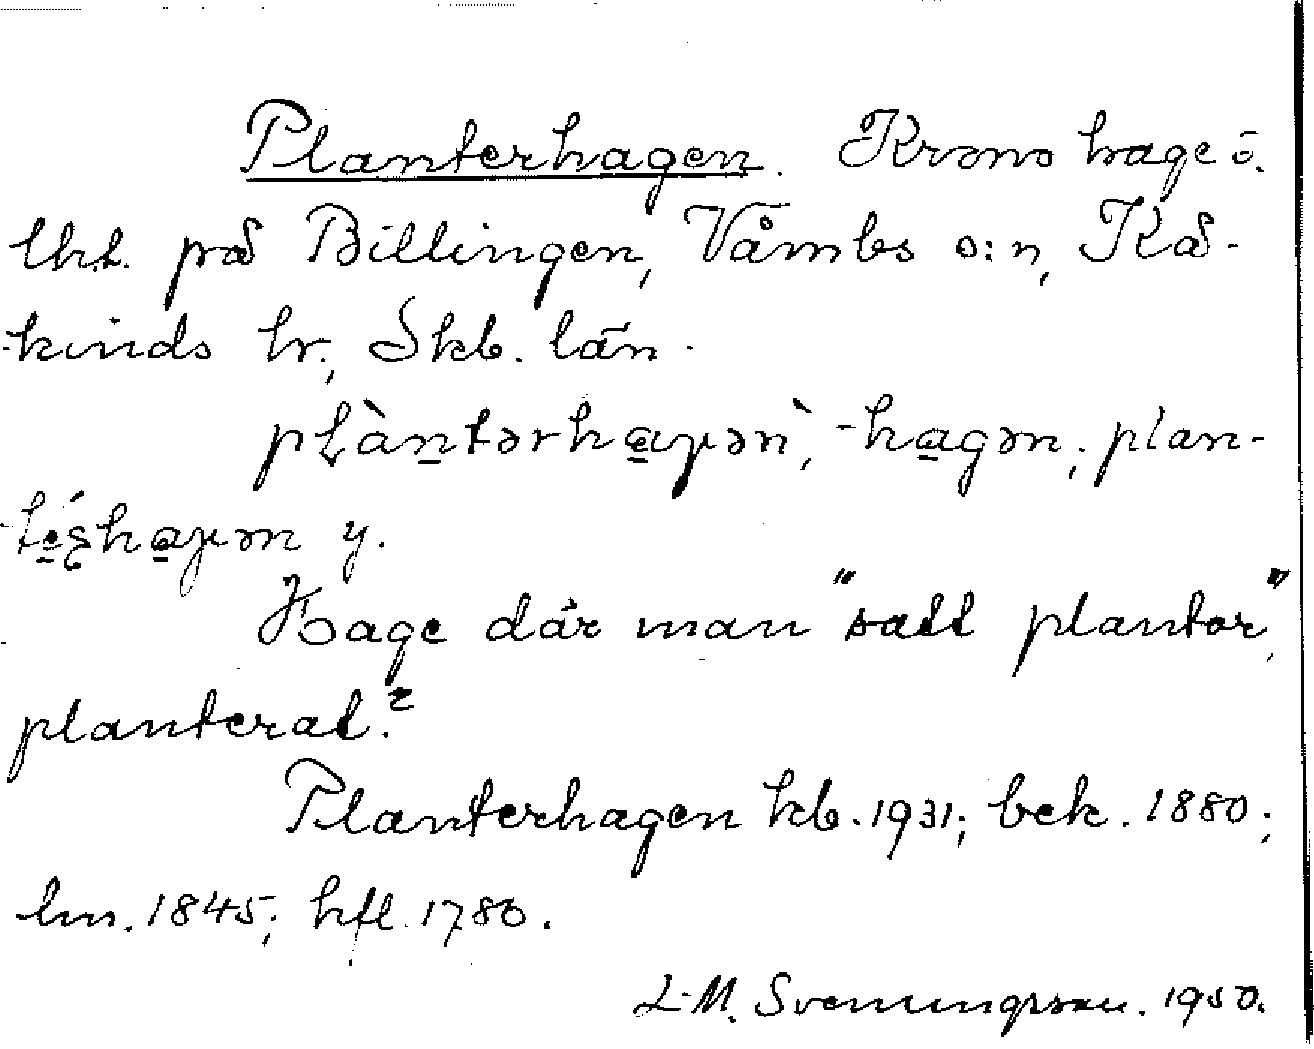 Planterhagen. Krono hage ö.
lht. på Billingen, Våmbs s:n, Kå-
kinds hr, Skb. län.
plàntərhaɣən`, -hagən, plan-
téʂhaɣən y.
Hage där man "satt plantor",
planterat.?
Planterhagen kb. 1931; bek. 1880;
lm. 1845; hfl. 1780.
L-M. Svenungsson. 1950.